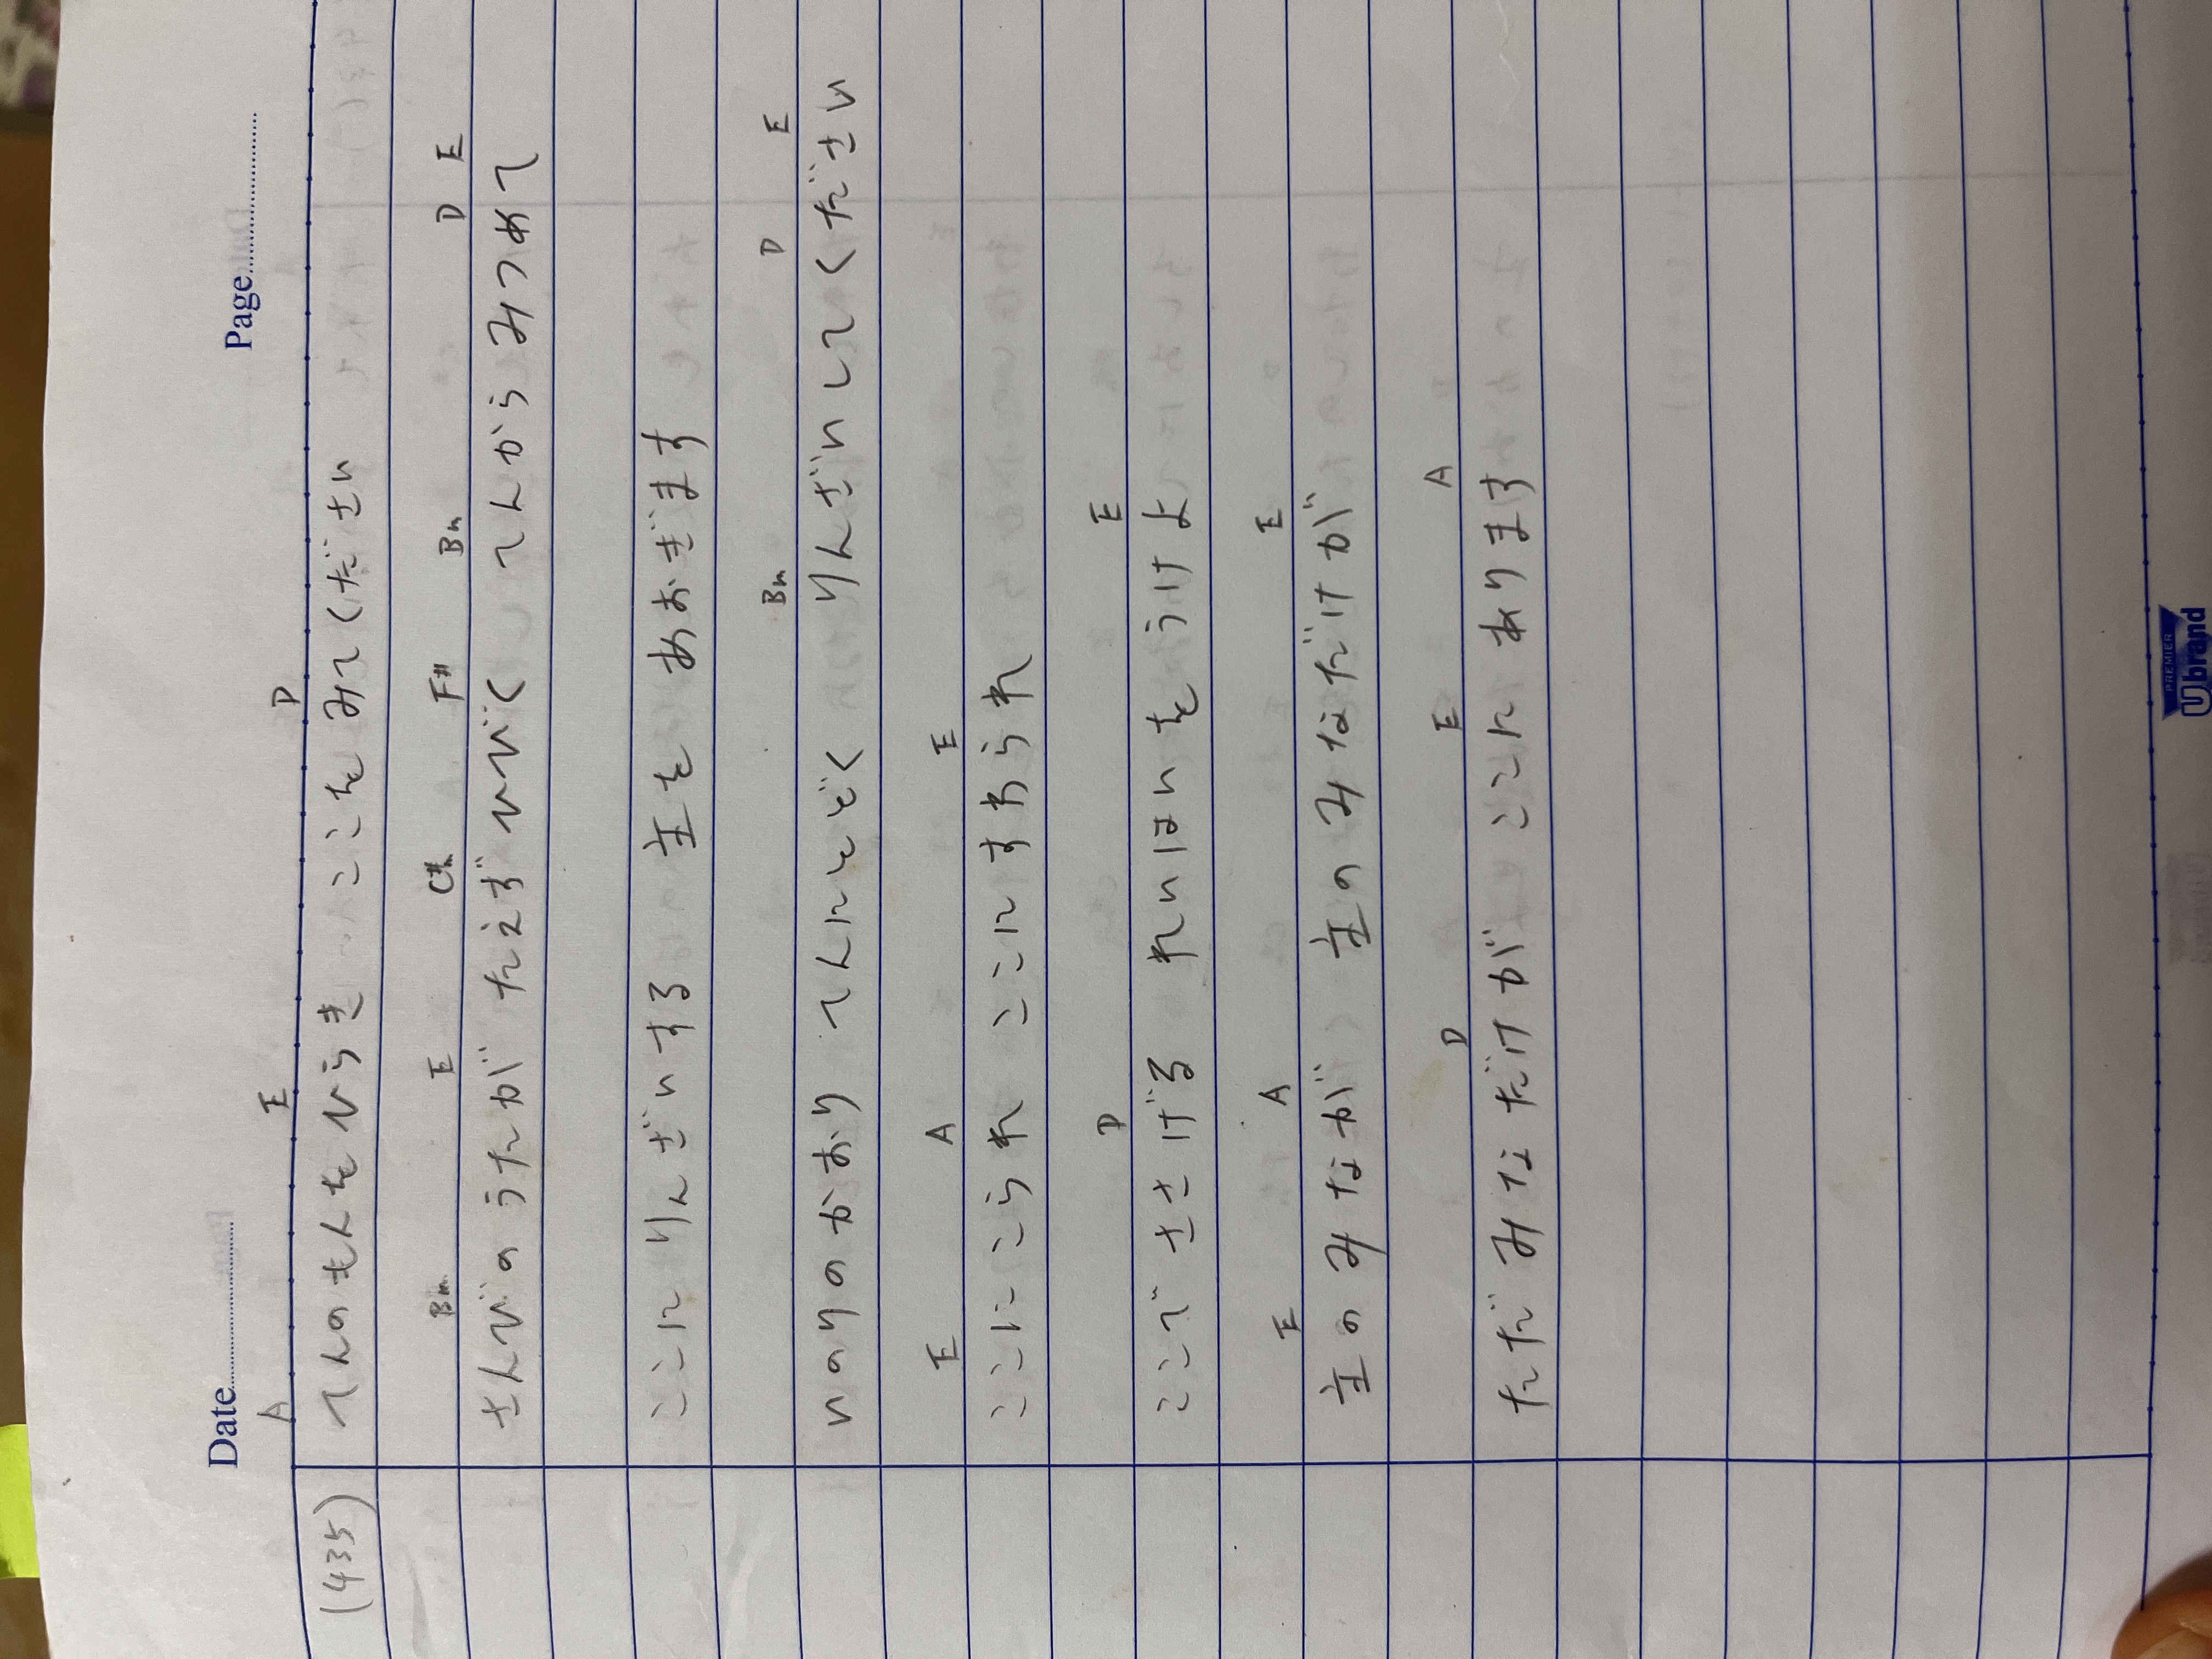 Date
Page
A E D
(435) てんのもんをひらき ここをみてください
Bm E C#m F# Bm D E
さんびのうたが たえずひびく てんから みつめて
ここに りんざいする 主を あおぎます
Bm D E
いのりのかおり てんにとどく りんざいしてください
E A E
ここに こられ ここにすわられ
D E
ここで ささげる れいはいをうけよ
E A E
主のみなが 主のみなだけが
D E A
ただ みなだけが ここに あります
PREMIER
Ubrand